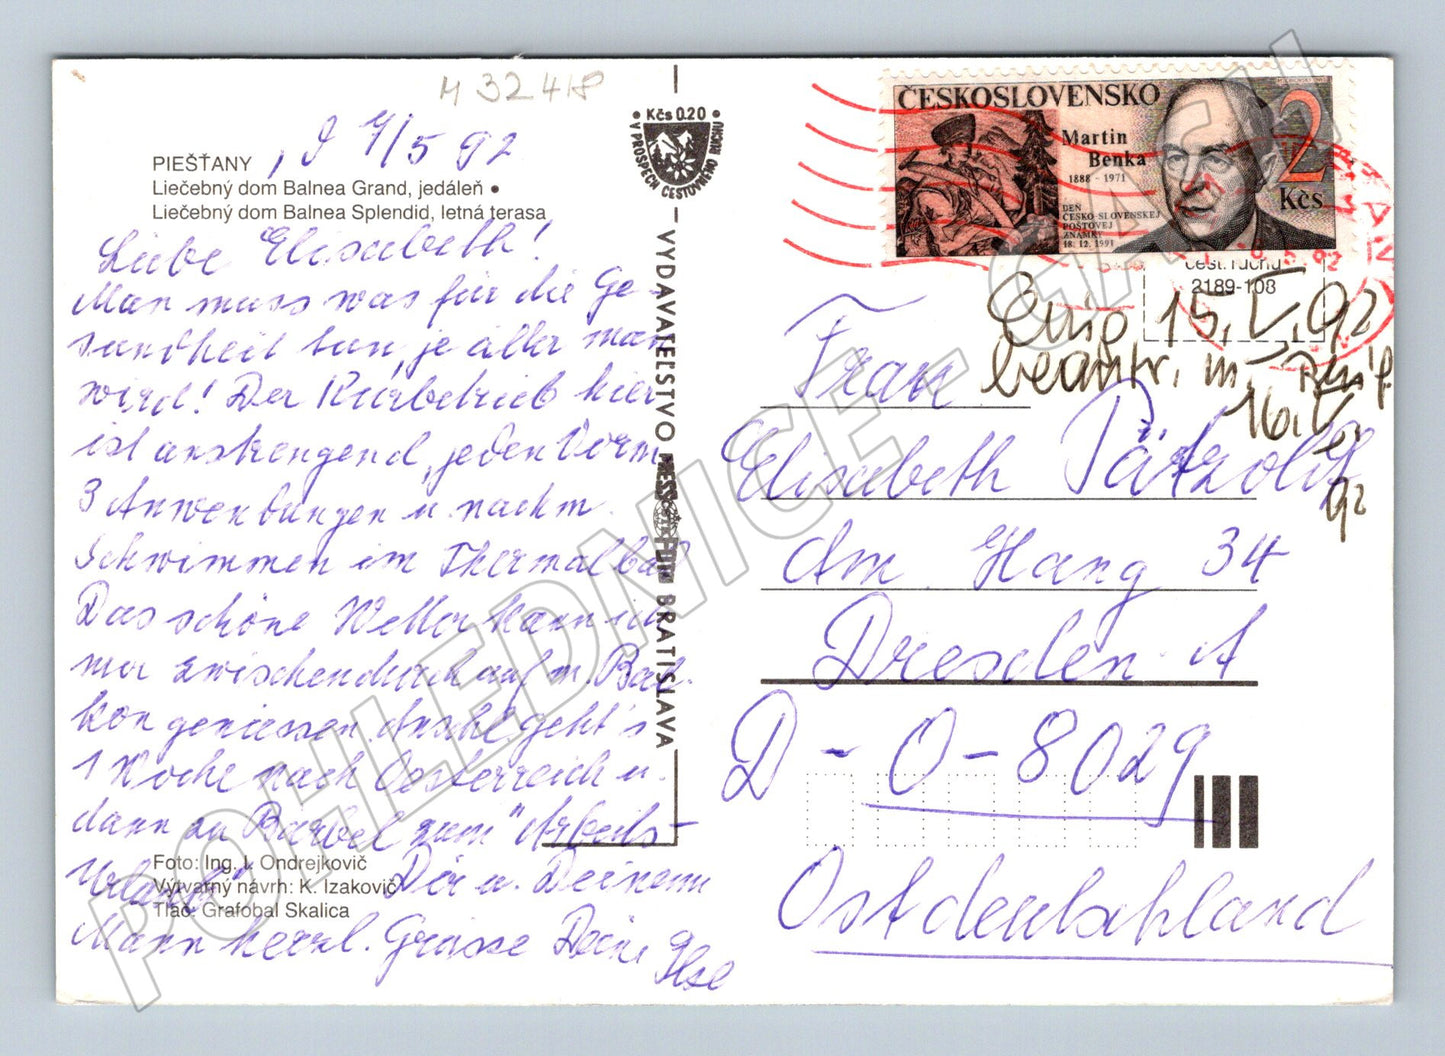 M 32418
PIEŠŤANY , d 4/5 92
Liečebný dom Balnea Grand, jedáleň •
Liečebný dom Balnea Splendid, letná terasa
Liebe Elisabeth!
Man muss was für die Ge-
sundheit tun, je älter man
wird! Der Kurbetrieb hier
ist anstrengend, jeden Vorm.
3 Anwendungen u. nachm.
Schwimmen im Thermalbad
Das schöne Wetter kann ich
nur zwischendurch auf m. Bal-
kon geniessen. Anschl. geht's
1 Woche nach Österreich u.
dann zu Bärbel zum "Arbeits-
Urlaub" Dir u. Deinem
Mann herzl. Grüsse Deine
Ilse
Foto: Ing. I. Ondrejkovič
Výtvarný návrh: K. Izakovič
Tlač: Grafobal Skalica
• Kčs 0.20 •
V PROSPECH CESTOVNÉHO RUCHU
VYDAVATEĽSTVO PRESSFOTO BRATISLAVA
ČESKOSLOVENSKO
Martin
Benka
1888 - 1971
DEŇ
ČESKO-SLOVENSKEJ
POŠTOVEJ
ZNÁMKY
18. 12. 1991
2
Kčs
cest. ruchu
2189-108
15. V. 92
beantw. m.
16. V.
92
Frau
Elisabeth Pätzold
Am Hang 34
Dresden A
D - O - 8029
Ostdeutschland
POHLEDNICE - GASH